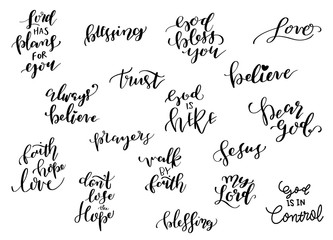 Lord
HAS
plans
FOR
you
blessing
God
bless
you
Love
trust
believe
always
believe
God
is
HERE
Dear
God
prayers
Jesus
faith
hope
love
walk
BY
faith
don't
lose
the
Hope
my
Lord
God
IS IN
Control
blessing